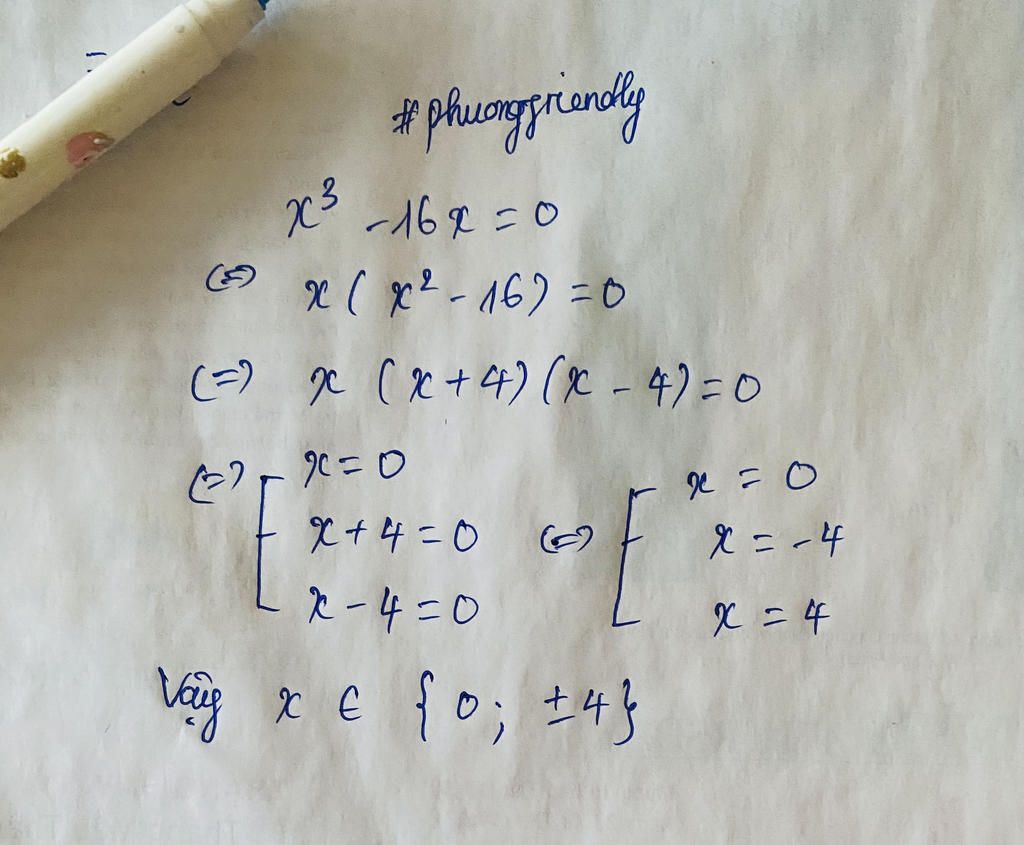 #phuongfriendly
x³ - 16x = 0
(=) x( x² - 16) = 0
(=) x (x + 4) (x - 4) = 0
(=) [ x = 0 
x + 4 = 0 (=) [ x = 0
x - 4 = 0 x = -4
x = 4
Vậy x ∈ {0; ±4}